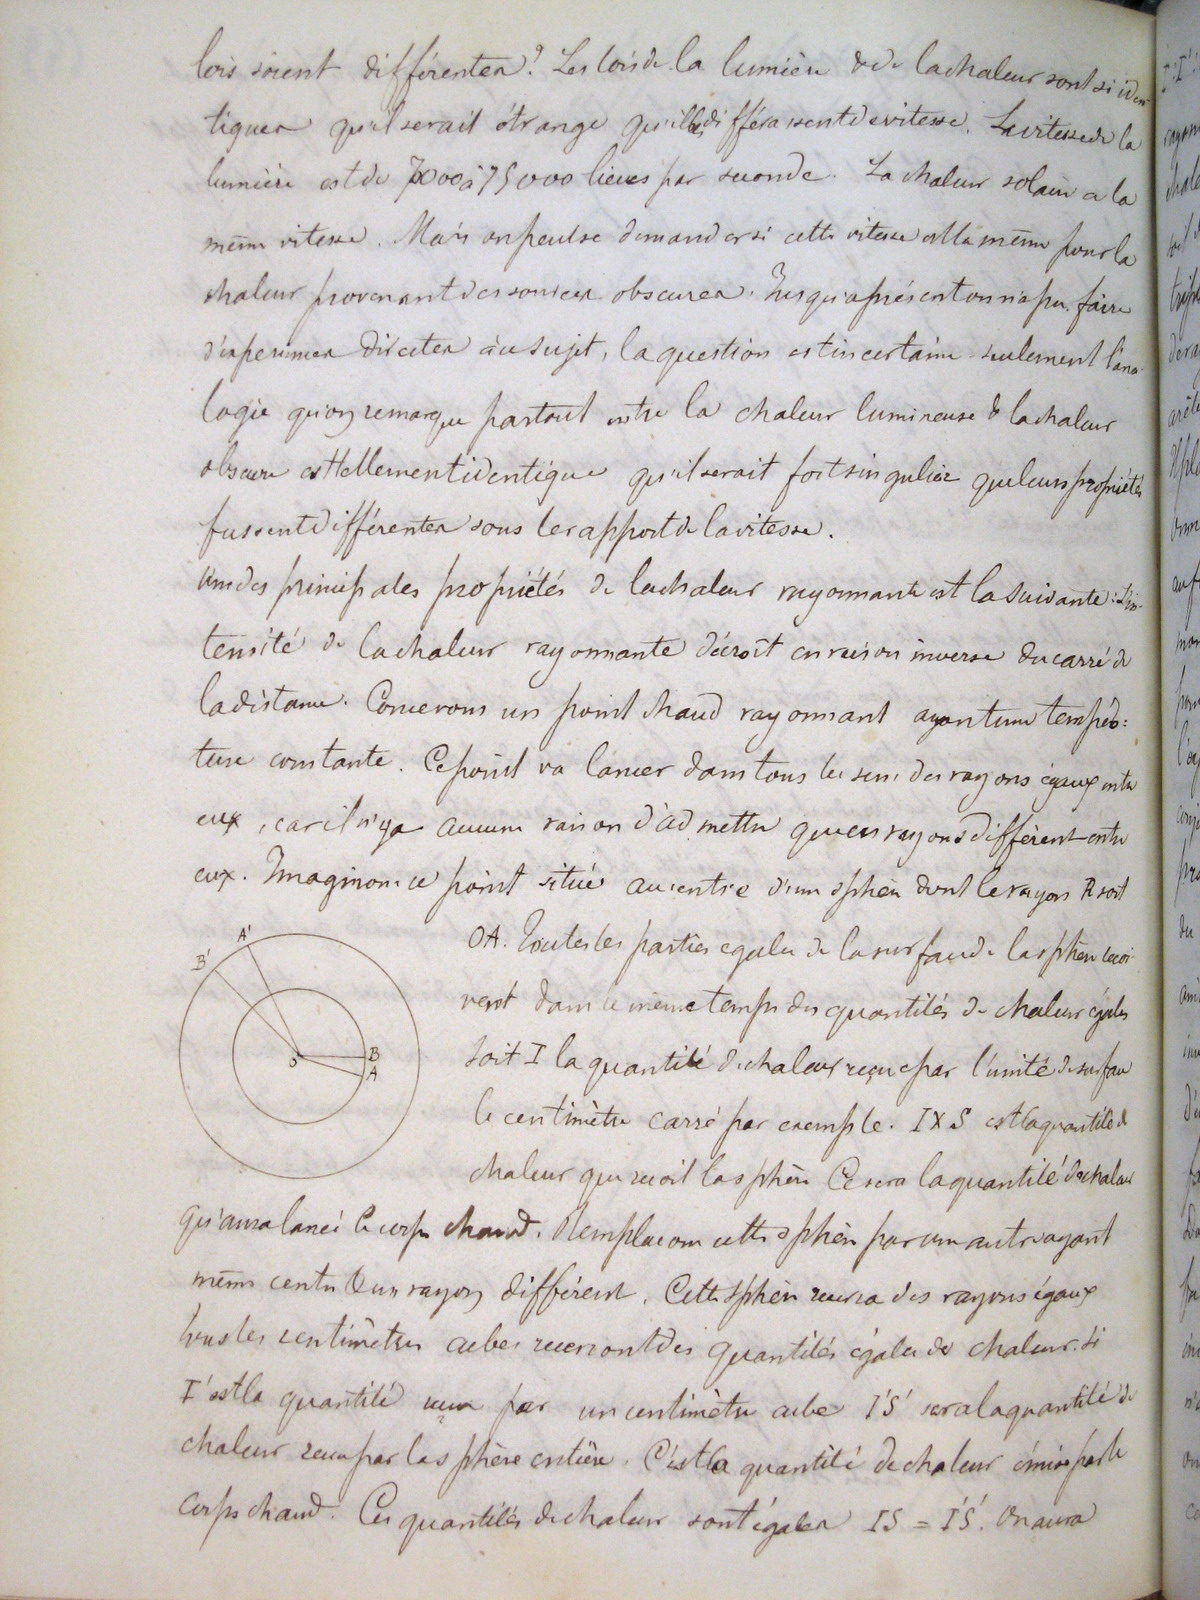 lois soient différentes? Les lois de la lumière & de la chaleur sont si iden-
tiques qu'il serait étrange qu'elles différassent de vitesse. La vitesse de la
lumière est de 70000 à 75000 lieues par seconde. La chaleur solaire a la
même vitesse. Mais on peut se demander si cette vitesse est la même pour la
chaleur provenant des sources obscures. Jusqu'à présent on n'a pu faire
d'expériences directes à ce sujet, la question est incertaine. seulement l'ana-
logie qu'on remarque partout entre la chaleur lumineuse & la chaleur
obscure est tellement identique qu'il serait fort singulier que leurs propriétés
fussent différentes sous le rapport de la vitesse.
Une des principales propriétés de la chaleur rayonnante est la suivante : L'in-
tensité de la chaleur rayonnante décroît en raison inverse du carré de
la distance. Concevons un point chaud rayonnant ayant une tempéra=
ture constante. Ce point va lancer dans tous les sens des rayons égaux entre
eux, car il n'y a aucune raison d'admettre que ces rayons diffèrent entre
eux. Imaginons ce point situé au centre d'une sphère dont le rayon R soit
OA. Toutes les parties égales de la surface de la sphère recoi
vent dans le même temps des quantités de chaleur égales
Soit I la quantité de chaleur reçue par l'unité de surface
le centimètre carré par exemple. I X S est la quantité de
chaleur que reçoit la sphère Ce sera la quantité de chaleur
qu'aura lancé le corps chaud. Remplacons cette sphère par une autre ayant
même centre & un rayon différent. Cette sphère recevra des rayons égaux
tous les centimètres cubes recevront des quantités égales de chaleur. Si
I' est la quantité reçue par un centimètre cube I'S' sera la quantité de
chaleur recue par la sphère entière. C'est la quantité de chaleur émise par le
corps chaud. Ces quantités de chaleur sont égales IS = I'S'. On aura
A'
B'
O
B
A